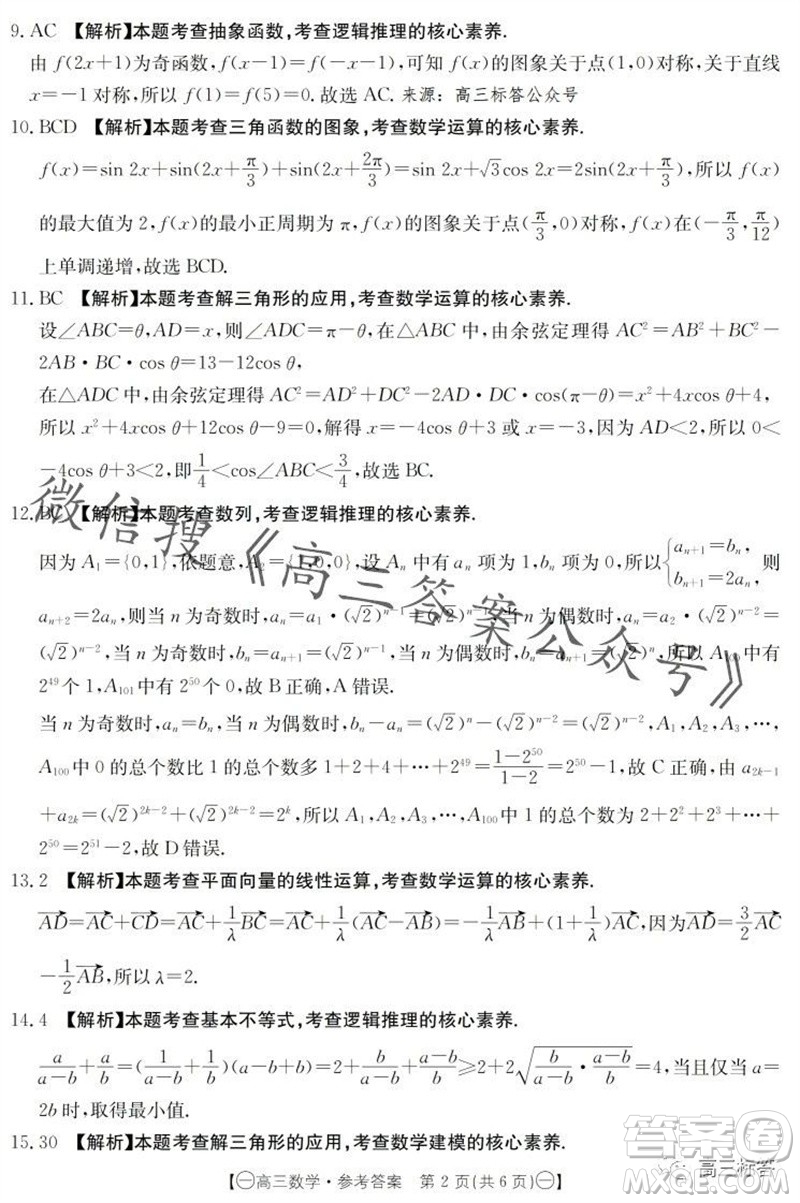 9. AC 【解析】本题考查抽象函数,考查逻辑推理的核心素养.
由 f(2x+1)为奇函数,f(x−1)=f(−x−1),可知 f(x)的图象关于点(1,0)对称,关于直线
x=−1 对称,所以 f(1)=f(5)=0.故选 AC. 来源：高三标答公众号
10. BCD 【解析】本题考查三角函数的图象,考查数学运算的核心素养.
f(x)=sin 2x+sin(2x+π/3)+sin(2x+2π/3)=sin 2x+√3cos 2x=2sin(2x+π/3),所以 f(x)
的最大值为 2,f(x)的最小正周期为 π,f(x)的图象关于点(π/3,0)对称,f(x)在(−π/3,π/12)
上单调递增,故选 BCD.
11. BC 【解析】本题考查解三角形的应用,考查数学运算的核心素养.
设∠ABC=θ,AD=x,则∠ADC=π−θ,在△ABC 中,由余弦定理得 AC²=AB²+BC²−
2AB·BC·cos θ=13−12cos θ,
在△ADC 中,由余弦定理得 AC²=AD²+DC²−2AD·DC·cos(π−θ)=x²+4xcos θ+4,
所以 x²+4xcos θ+12cos θ−9=0,解得 x=−4cos θ+3 或 x=−3,因为 AD<2,所以 0<
−4cos θ+3<2,即1/4<cos∠ABC<3/4,故选 BC.
12. BC 【解析】本题考查数列,考查逻辑推理的核心素养.
因为 A₁={0,1},依题意,A₂={1,0,0},设 Aₙ 中有 aₙ 项为1,bₙ 项为0,所以{aₙ₊₁=bₙ, bₙ₊₁=2aₙ, 则
aₙ₊₂=2aₙ,则当 n 为奇数时,aₙ=a₁·(√2)ⁿ⁻¹=(√2)ⁿ⁻¹,当 n 为偶数时,aₙ=a₂·(√2)ⁿ⁻²=
(√2)ⁿ⁻²,当 n 为奇数时,bₙ=aₙ₊₁=(√2)ⁿ⁻¹,当 n 为偶数时,bₙ=aₙ₊₁=(√2)ⁿ,所以 A₁₀₀ 中有
2⁴⁹个 1,A₁₀₁中有 2⁵⁰个 0,故 B 正确,A 错误.
当 n 为奇数时,aₙ=bₙ,当 n 为偶数时,bₙ−aₙ=(√2)ⁿ−(√2)ⁿ⁻²=(√2)ⁿ⁻²,A₁,A₂,A₃,…,
A₁₀₀中 0 的总个数比 1 的总个数多 1+2+4+…+2⁴⁹=(1−2⁵⁰)/(1−2)=2⁵⁰−1,故 C 正确,由 a₂ₖ₋₁
+a₂ₖ=(√2)²ᵏ⁻²+(√2)²ᵏ⁻²=2ᵏ,所以 A₁,A₂,A₃,…,A₁₀₀中 1 的总个数为 2+2²+2³+…+
2⁵⁰=2⁵¹−2,故 D 错误.
13. 2 【解析】本题考查平面向量的线性运算,考查数学运算的核心素养.
AD→=AC→+CD→=AC→+1/λ BC→=AC→+1/λ(AC→−AB→)=−1/λ AB→+(1+1/λ)AC→,因为AD→=3/2 AC→
−1/2 AB→,所以 λ=2.
14. 4 【解析】本题考查基本不等式,考查逻辑推理的核心素养.
a/(a−b)+a/b=(1/(a−b)+1/b)(a−b+b)=2+b/(a−b)+(a−b)/b≥2+2√(b/(a−b)·(a−b)/b)=4,当且仅当 a=
2b 时,取得最小值.
15. 30 【解析】本题考查解三角形的应用,考查数学建模的核心素养.
【㊀高三数学·参考答案 第 2 页(共 6 页)㊀】
微信搜《高三答案公众号》
答案圈
MXQE.COM
高三标答